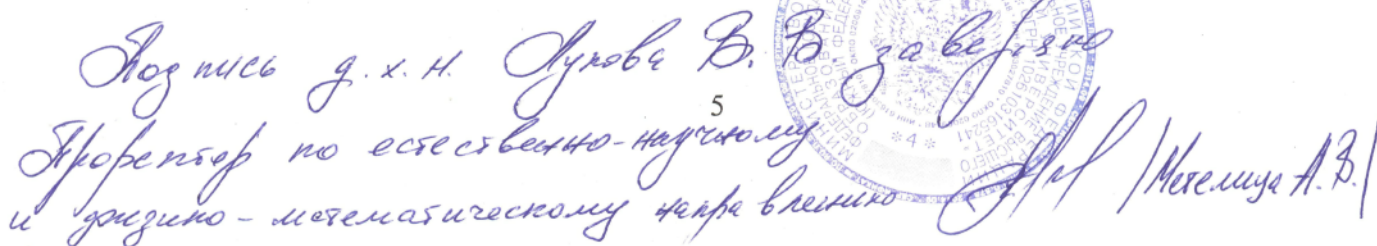 Подпись д.х.н. Лукова В.В. заверяю
5
Проректор по естественно-научному
и физико-математическому направлению /Метелица А.В./